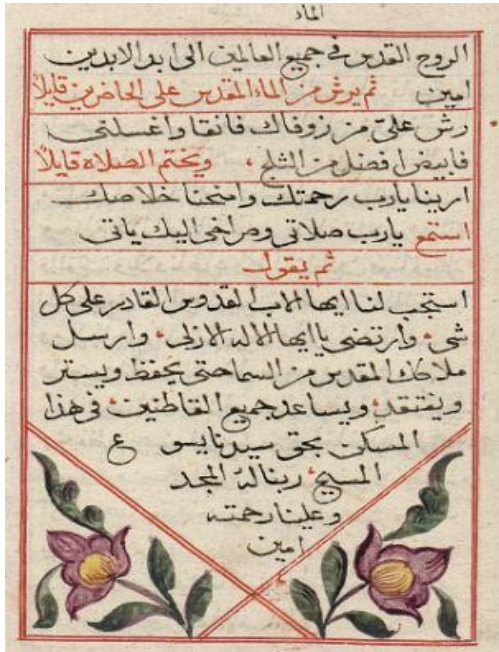 الماء
الروح القدس في جميع العالمين الى ابد الابدين
امين ثم يرش من الماء المقدس على الحاضرين قايلاً
رش عليّ من زوفاك فانقا واغسلني
فابيض افضل من الثلج، ويختم الصلاة قايلاً
ارينا يارب رحمتك وامنحنا خلاصك
استمع يارب صلاتي وصراخي اليك ياتي
ثم يقول
استجب لنا ايها الاب القدوس القادر على كل
شيء وارتضي يا ايها الاله الازلي، وارسل
ملاكك المقدس من السما حتى يحفظ ويستر
ويفتقد، ويساعد جميع القاطنين، في هذا
المسكن بحق سيدنا يسوع
المسيح، ربنا لهُ المجد
وعلينا رحمته
امين